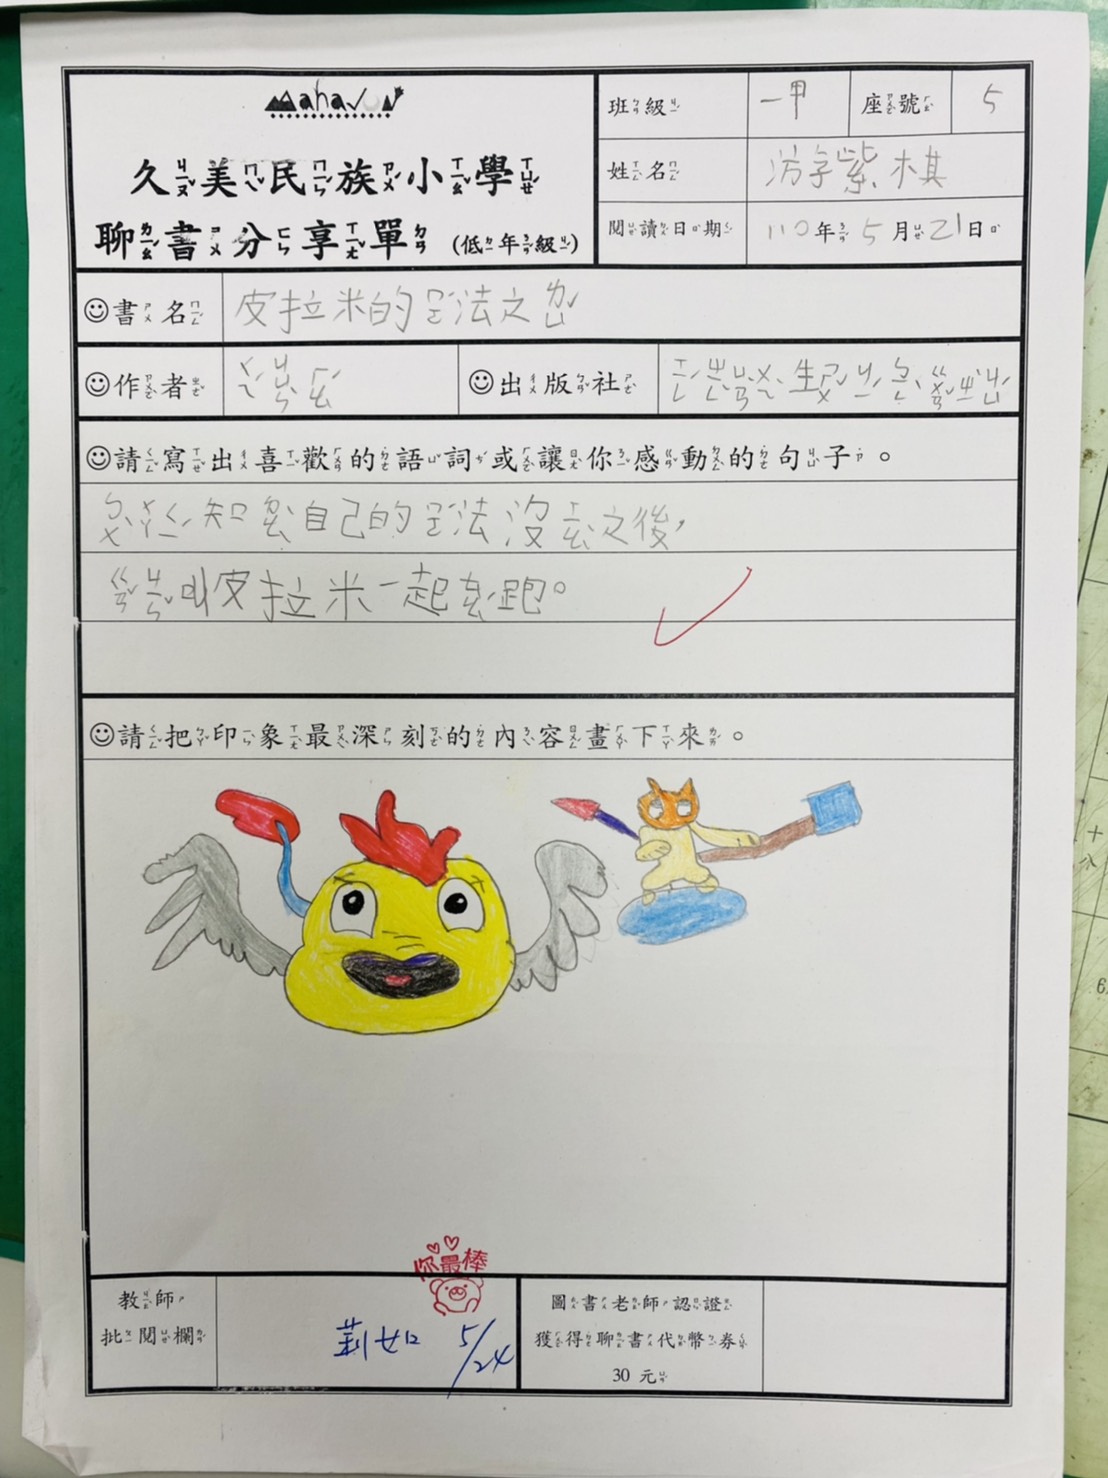 Mahavun
久美民族小學
聊書分享單(低年級)
班級 一甲 座號 5
姓名 紫棋
閱讀日期 110年5月21日
書名 皮拉米的ㄇㄛˊ法之ㄌㄩˇ
作者
出版社
請寫出喜歡的語詞或讓你感動的句子。
知ㄉㄠˋ自己的ㄇㄛˊ法沒ㄒㄧㄠˋ之後,
ㄍㄢˇㄐㄧㄣˇ叫皮拉米一起ㄊㄠˊ跑。
請把印象最深刻的內容畫下來。
你最棒
教師
批閱欄
莉如 5/24
圖書老師認證
獲得聊書代幣券
30 元